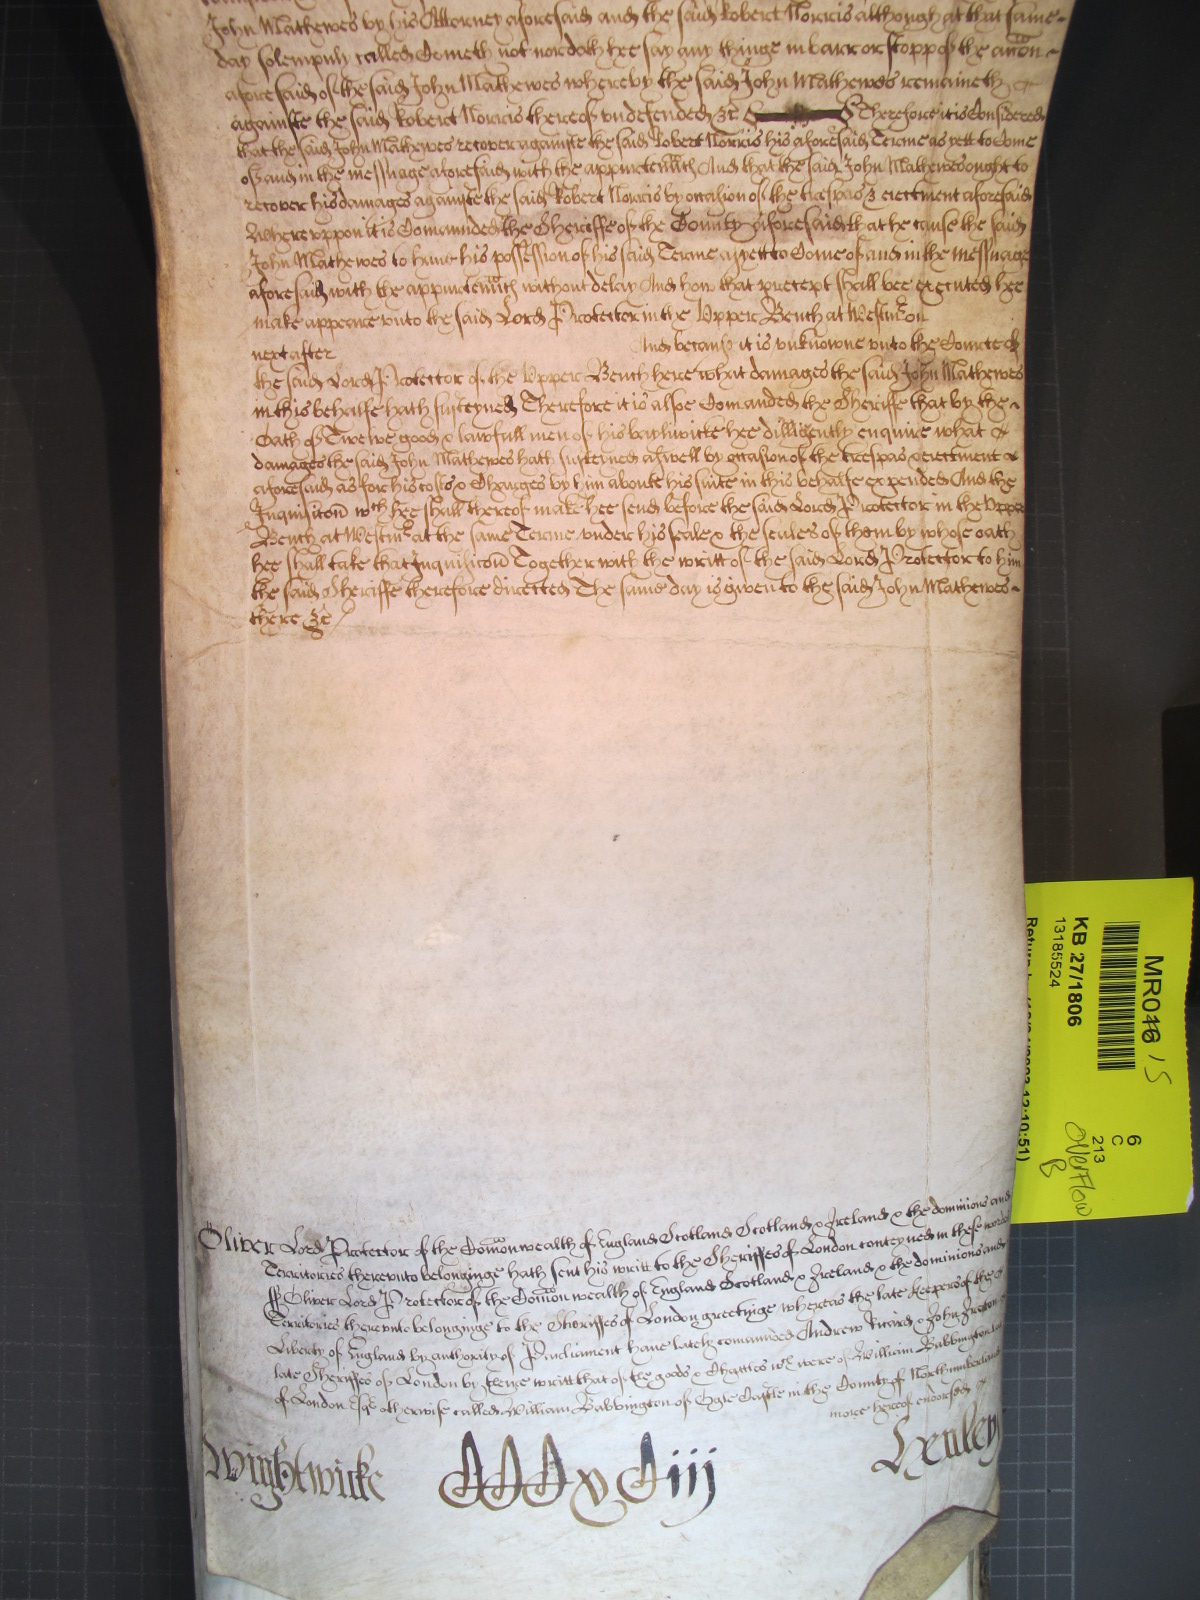 John Mathewes by his Attorney aforesaid and the said Robert Norris although at that same
day solempnly called Cometh not nor doth hee say any thinge in barr or stopp of the accon
aforesaid of the said John Mathewes whereby the said John Mathewes remaineth
againste the said Robert Norris thereof undefended &c Therefore it is Considered
that the said John Mathewes recover againste the said Robert Norris his aforesaid Terme as yett to Come
of and in the messuage aforesaid with the appurtenncs And that the said John Mathewes ought to
recover his damages againste the said Robert Norris by occasion of the trespas & eiectment aforesaid
Whereuppon it is Comaunded the Sheriffe of the County aforesaid that he cause the said
John Mathewes to haue his possession of his said Terme as yett to Come of and in the messuage
aforesaid with the appurtenncs without delay And how that precept shall bee executed hee
make appeare unto the said Lord Protector in the Upper Bench at Westm on
next after And because it is unknowne unto the Courte of
the said Lord Protector of the Upper Bench here what damages the said John Mathewes
in this behalfe hath susteyned Therefore it is alsoe Comanded the Sheriffe that by the
Oath of Twelve good & lawfull men of his bayliwicke hee dilligently enquire what
damages the said John Mathewes hath susteined aswell by occasion of the trespas & eiectment
aforesaid as for his costs & Charges by him aboute his suite in this behalfe expended And the
Inquisicon wch hee shall thereof make hee send before the said Lord Protector in the Upper
Bench at Westmr at the same Terme under his seale & the seales of them by whose oath
hee shall take that Inquisicon Together with the writt of the said Lord Protector to him
the said Sheriffe therefore directed The same day is given to the said John Mathewes
there &c
Oliver Lord Protector of the Comonwealth of England Scotland Scotland & Ireland & the dominions and
Territories thereunto belonginge hath sent his writt to the Sheriffes of London conteyned in these words
ss Oliver Lord Protector of the Comonwealth of England Scotland & Ireland & the dominions and
Territories thereunto belonginge to the Sheriffes of London greetinge whereas the late keepers of the
Liberty of England by authority of Parliament haue lately comanded Andrew Ricard & John
late Sheriffes of London by theire writt that of the goods & Chattles wch were of William Babbington
of London Esqr otherwise called William Babbington of Ogle Castle in the County of Northumberland
more hereof endorsed
Wightwicke CCCxCiij Henley
MR016 15
KB 27/1806
13185524
6
C
213
Overflow
B